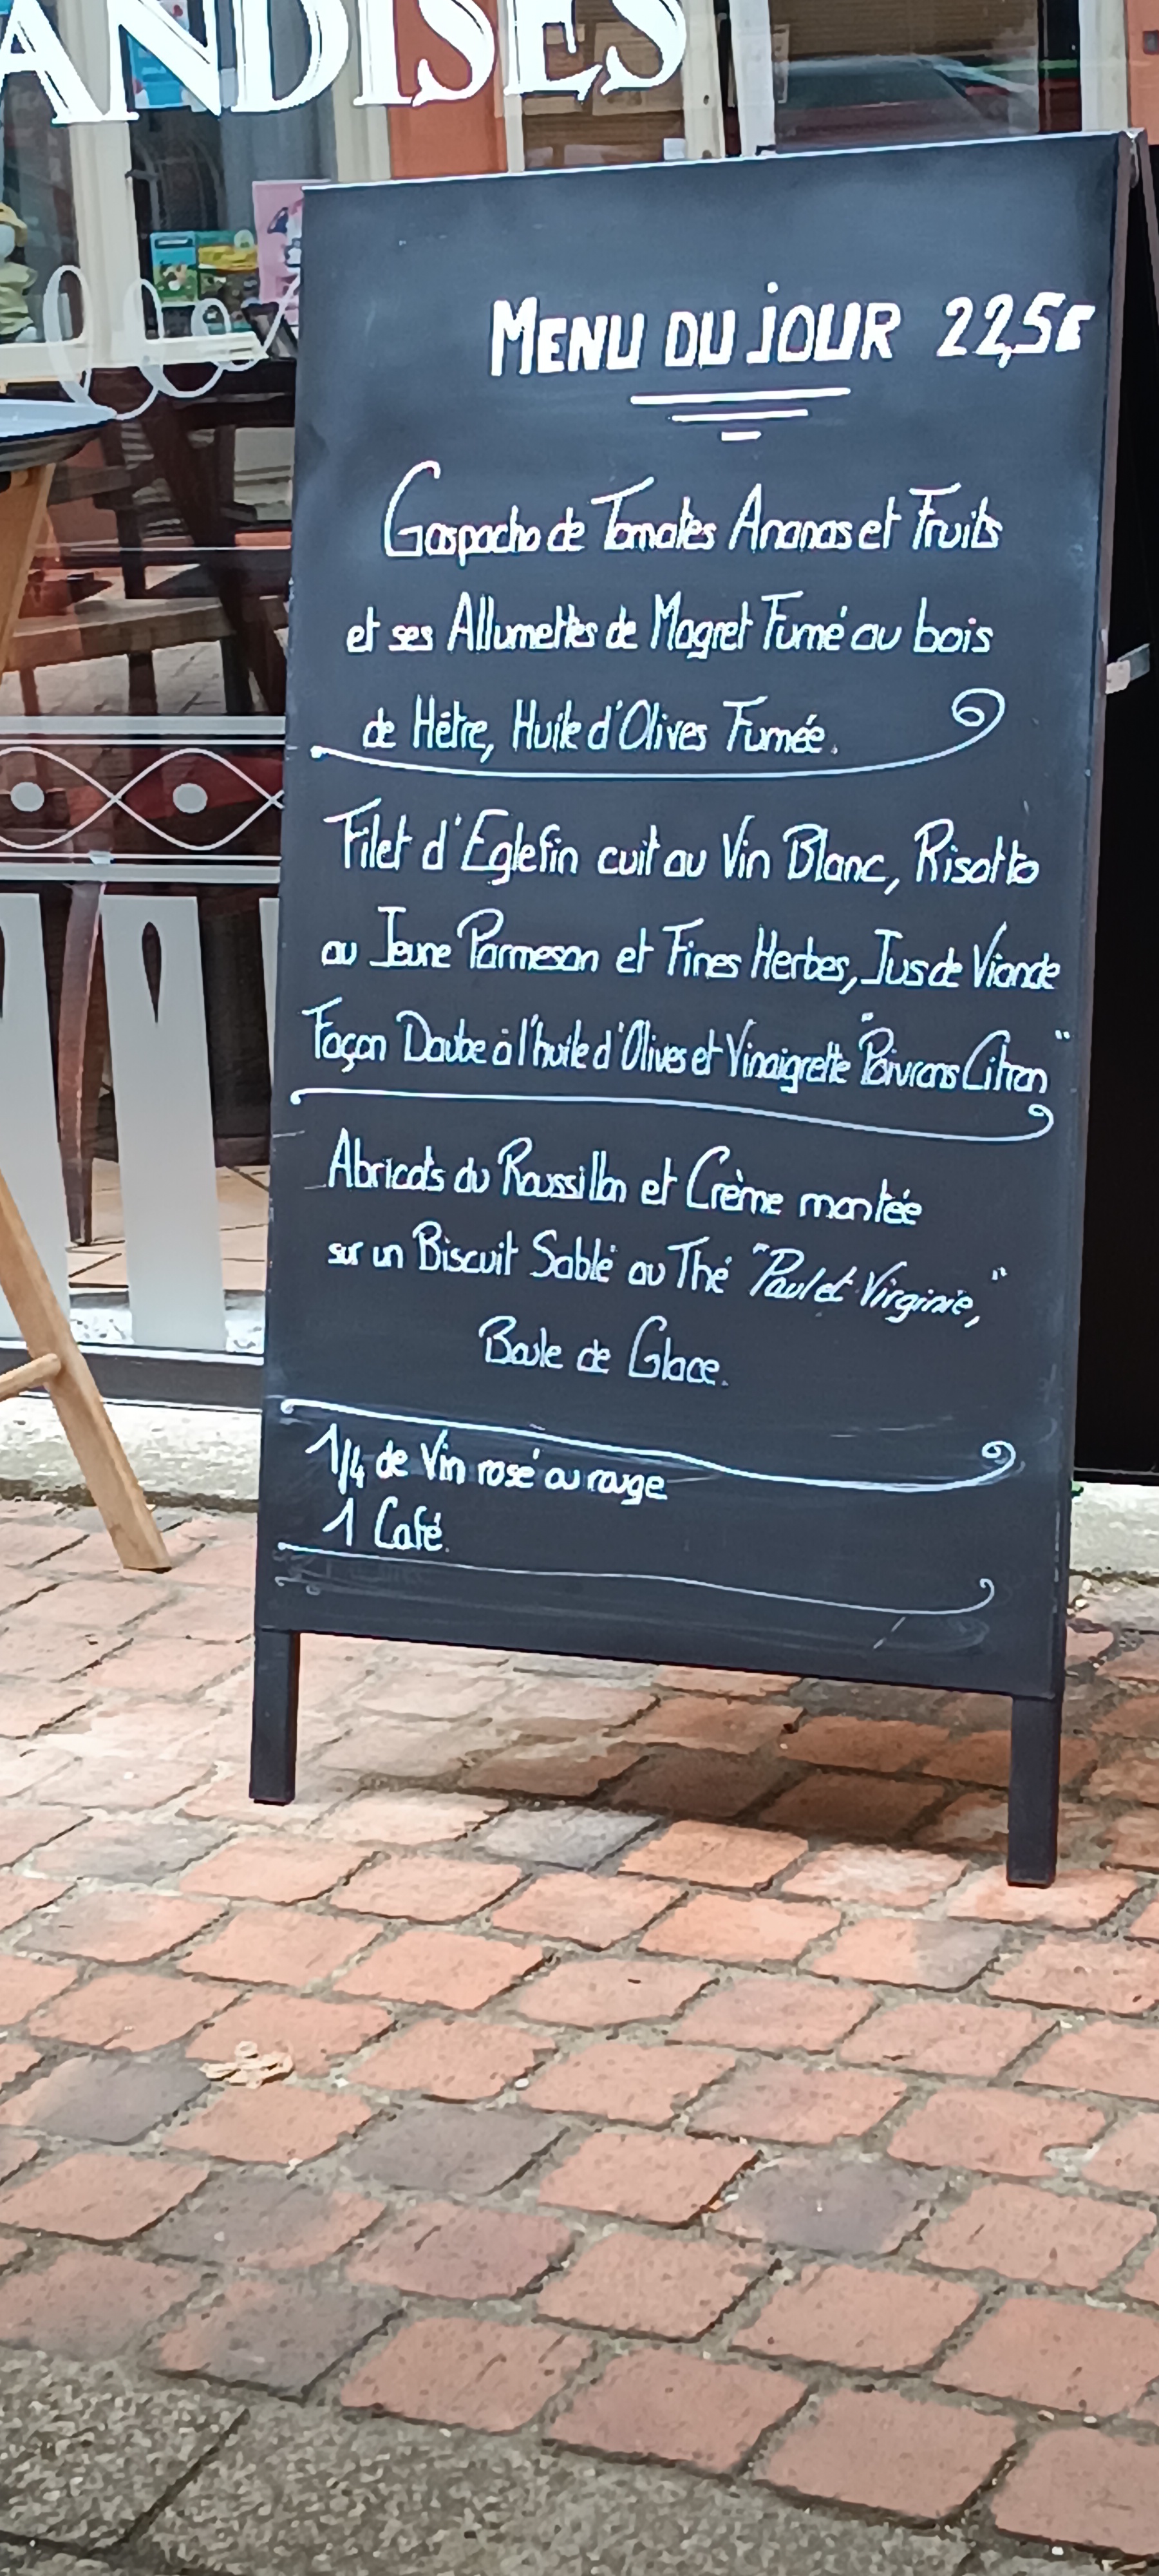 ANDISES
MENU DU JOUR 22,5€
Gaspacho de Tomates Ananas et Fruits
et ses Allumettes de Magret Fumé au bois
de Hêtre, Huile d'Olives Fumée.
Filet d'Eglefin cuit au Vin Blanc, Risotto
au Jeune Parmesan et Fines Herbes, Jus de Viande
Façon Daube à l'huile d'Olives et Vinaigrette "Poivrons Citron"
Abricots du Roussillon et Crème montée
sur un Biscuit Sablé au Thé "Paul et Virginie,"
Boule de Glace.
1/4 de Vin rosé ou rouge
1 Café.